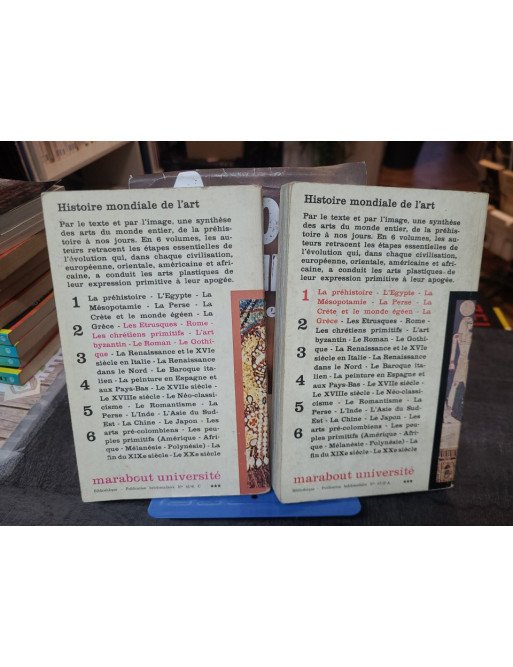 Histoire mondiale de l'art
Par le texte et par l'image, une synthèse
des arts du monde entier, de la préhis-
toire à nos jours. En 6 volumes, les au-
teurs retracent les étapes essentielles de
l'évolution qui, dans chaque civilisation,
européenne, orientale, américaine et afri-
caine, a conduit les arts plastiques de
leur expression primitive à leur apogée.
1 La préhistoire - L'Egypte - La
Mésopotamie - La Perse - La
Crète et le monde égéen - La
2 Grèce - Les Etrusques - Rome -
Les chrétiens primitifs - L'art
byzantin - Le Roman - Le Gothi-
3 que - La Renaissance et le XVIe
siècle en Italie - La Renaissance
dans le Nord - Le Baroque ita-
4 lien - La peinture en Espagne et
aux Pays-Bas - Le XVIIe siècle -
Le XVIIIe siècle - Le Néo-classi-
5 cisme - Le Romantisme - La
Perse - L'Inde - L'Asie du Sud-
Est - La Chine - Le Japon - Les
6 arts pré-colombiens - Les peu-
ples primitifs (Amérique - Afri-
que - Mélanésie - Polynésie) - La
fin du XIXe siècle - Le XXe siècle
marabout université
Histoire mondiale de l'art
Par le texte et par l'image, une synthèse
des arts du monde entier, de la préhis-
toire à nos jours. En 6 volumes, les au-
teurs retracent les étapes essentielles de
l'évolution qui, dans chaque civilisation,
européenne, orientale, américaine et afri-
caine, a conduit les arts plastiques de
leur expression primitive à leur apogée.
1 La préhistoire - L'Egypte - La
Mésopotamie - La Perse - La
Crète et le monde égéen - La
2 Grèce - Les Etrusques - Rome -
Les chrétiens primitifs - L'art
byzantin - Le Roman - Le Gothi-
3 que - La Renaissance et le XVIe
siècle en Italie - La Renaissance
dans le Nord - Le Baroque ita-
4 lien - La peinture en Espagne et
aux Pays-Bas - Le XVIIe siècle -
Le XVIIIe siècle - Le Néo-classi-
5 cisme - Le Romantisme - La
Perse - L'Inde - L'Asie du Sud-
Est - La Chine - Le Japon - Les
6 arts pré-colombiens - Les peu-
ples primitifs (Amérique - Afri-
que - Mélanésie - Polynésie) - La
fin du XIXe siècle - Le XXe siècle
marabout université